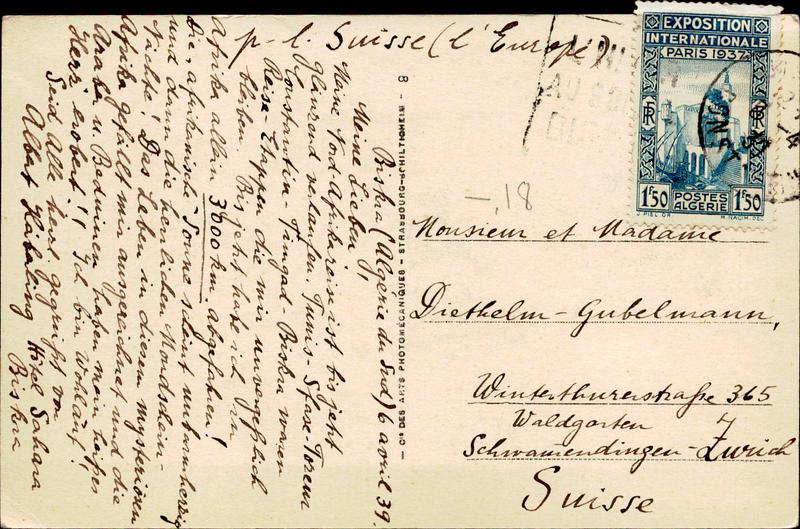 p-l. Suisse (l'Europe)
Biskra (Algérie du Sud) 6 avril 39.
Meine Lieben,
Meine Nord-Afrikareise ist bis jetzt
glänzend verlaufen. Tunis-Sfax-
Constantin - Timgad - Biskra waren
Reise-Etappen die mir unvergeßlich
bleiben. Bis jetzt habe ich in
Afrika allein 3000 km. abgefahren!
Die afrikanische Sonne scheint unbarmherzig
und dann die herrlichen Mondschein-
nächte! Das Leben in diesem mysteriösen
Afrika gefällt mir ausgezeichnet und die
Araber u. Beduinen haben mein tiefes
Herz erobert!! Ich bin Wohlauf!!
Seid Alle herzl. gegrüßt von
Albert
Hôtel Sahara
Biskra
8
— CIE DES ARTS PHOTOMÉCANIQUES - STRASBOURG-SCHILTIGHEIM —
EXPOSITION
INTERNATIONALE
PARIS 1937
RF
RF
1F50
POSTES
ALGÉRIE
1F50
-,18
Monsieur et Madame
Diethelm-Gubelmann,
Winterthurerstraße 365
Waldgarten 7
Schwamendingen-Zurich
Suisse